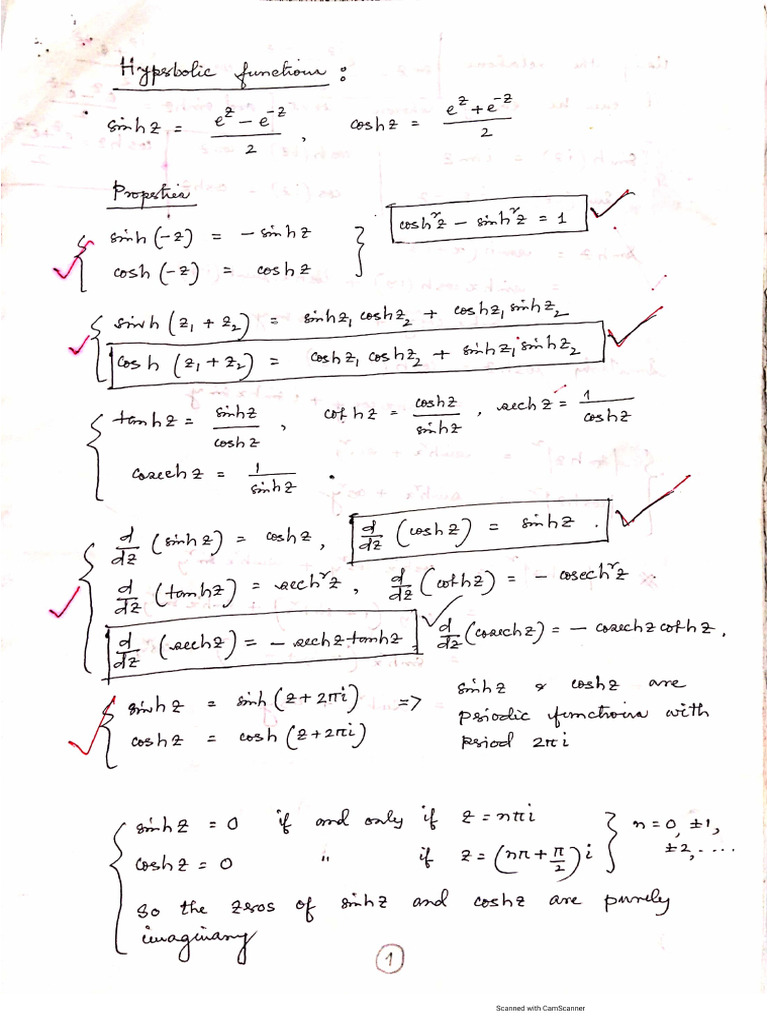 Hyperbolic functions :
sinh z = (e^z − e^-z)/2 , cosh z = (e^z + e^-z)/2
Properties
cosh²z − sinh²z = 1
sinh (−z) = − sinh z
cosh (−z) = cosh z
sinh (z₁ + z₂) = sinh z₁ cosh z₂ + cosh z₁ sinh z₂
cosh (z₁ + z₂) = cosh z₁ cosh z₂ + sinh z₁ sinh z₂
tanh z = sinh z/cosh z , coth z = cosh z/sinh z , sech z = 1/cosh z
cosech z = 1/sinh z .
d/dz (sinh z) = cosh z , d/dz (cosh z) = sinh z .
d/dz (tanh z) = sech²z , d/dz (coth z) = − cosech²z
d/dz (sech z) = − sech z tanh z , d/dz (cosech z) = − cosech z coth z ,
sinh z = sinh (z + 2πi) => sinh z & cosh z are
cosh z = cosh (z + 2πi) periodic functions with
period 2πi
sinh z = 0 if and only if z = nπi } n = 0, ±1,
cosh z = 0 " if z = (nπ + π/2) i ±2, ....
So the zeros of sinh z and cosh z are purely
imaginary
1
Scanned with CamScanner